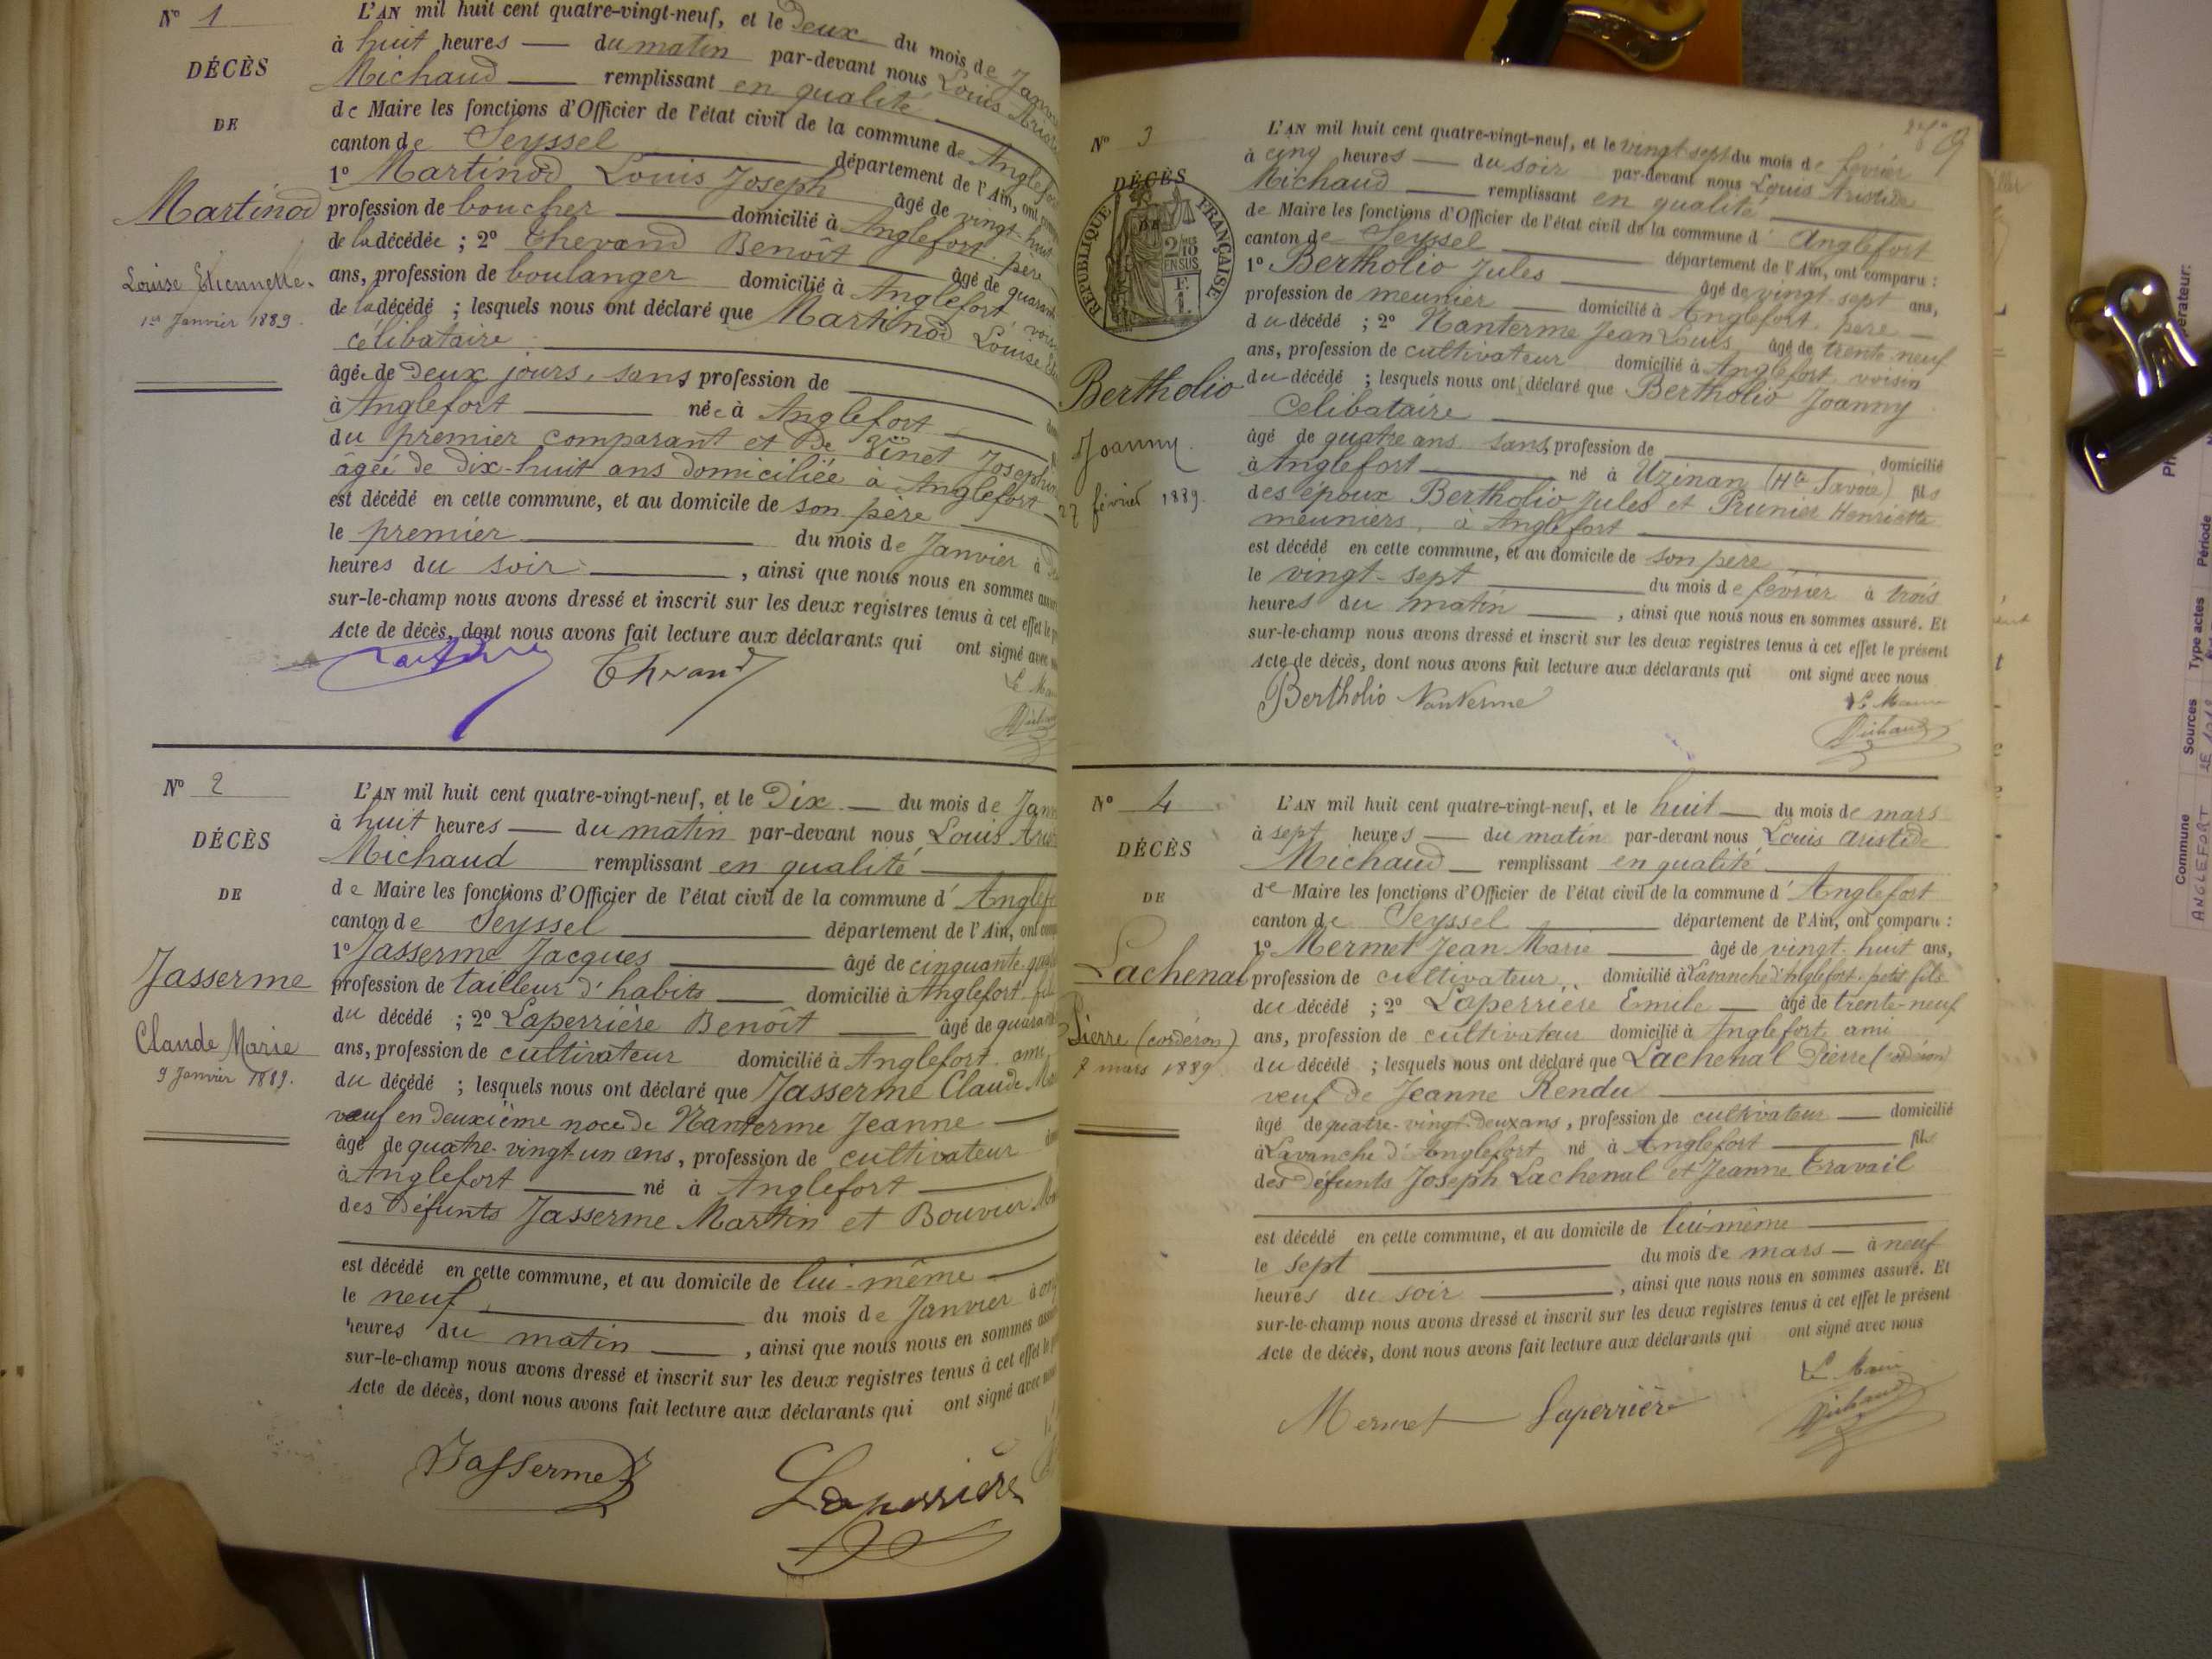 N° 1
DÉCÈS
DE
Martinod
Louise Etiennette.
1er Janvier 1889.
L'AN mil huit cent quatre-vingt-neuf, et le Deux du mois de
à huit heures du matin par-devant nous Louis
Michaud remplissant en qualité
de Maire les fonctions d'Officier de l'état civil de la commune de
canton de Seyssel département de l'Ain, ont
1° Martinod Louis Joseph âgé de vingt-huit
profession de boucher domicilié à Anglefort. père
de la décédée ; 2° Thevand Benoît âgé de
ans, profession de boulanger domicilié à Anglefort,
de la décédé ; lesquels nous ont déclaré que Martinod Louise
célibataire
âgée de Deux jours, sans profession de
à Anglefort née à Anglefort
du premier comparant et De Vinet
âgée de Dix-huit ans domiciliée à Anglefort
est décédé en cette commune, et au domicile de son père
le premier du mois de Janvier à
heures du soir , ainsi que nous nous en sommes
sur-le-champ nous avons dressé et inscrit sur les deux registres tenus à cet effet le
Acte de décès, dont nous avons fait lecture aux déclarants qui ont signé avec
N° 2
DÉCÈS
DE
Jasserme
Claude Marie
9 Janvier 1889.
L'AN mil huit cent quatre-vingt-neuf, et le Dix du mois de
à huit heures du matin par-devant nous Louis
Michaud remplissant en qualité
de Maire les fonctions d'Officier de l'état civil de la commune d'
canton de Seyssel département de l'Ain, ont
1° Jasserme Jacques âgé de cinquante
profession de tailleur d'habits domicilié à Anglefort
du décédé ; 2° Laperrière Benoît âgé de
ans, profession de cultivateur domicilié à Anglefort. ami
du décédé ; lesquels nous ont déclaré que Jasserme Claude
veuf en deuxième noce de Nanterme Jeanne
âgé de quatre-vingt-un ans, profession de cultivateur
à Anglefort né à Anglefort
des Défunts Jasserme Martin et
est décédé en cette commune, et au domicile de lui-même
le neuf du mois de Janvier
heures du matin , ainsi que nous nous en sommes
sur-le-champ nous avons dressé et inscrit sur les deux registres tenus à cet effet
Acte de décès, dont nous avons fait lecture aux déclarants qui ont signé avec
Jasserme Laperrière
N° 3
DÉCÈS
DE
RÉPUBLIQUE FRANÇAISE
Bertholio
Joanny.
27 février 1889.
L'AN mil huit cent quatre-vingt-neuf, et le vingt-sept du mois de février
à cinq heures du soir par-devant nous Louis Aristide
Michaud remplissant en qualité
de Maire les fonctions d'Officier de l'état civil de la commune d' Anglefort
canton de Seyssel département de l'Ain, ont comparu :
1° Bertholio Jules âgé de vingt-sept ans,
profession de meunier domicilié à Anglefort. père
du décédé ; 2° Nanterme Jean Louis âgé de trente-neuf
ans, profession de cultivateur domicilié à Anglefort, voisin
du décédé ; lesquels nous ont déclaré que Bertholio Joanny
Célibataire
âgé de quatre ans sans profession de domicilié
à Anglefort né à Uzinan (Hte Savoie) fils
des époux Bertholio Jules et Prunier Henriette
meuniers, à Anglefort
est décédé en cette commune, et au domicile de son père
le vingt-sept du mois de février à trois
heures du matin , ainsi que nous nous en sommes assuré. Et
sur-le-champ nous avons dressé et inscrit sur les deux registres tenus à cet effet le présent
Acte de décès, dont nous avons fait lecture aux déclarants qui ont signé avec nous
Bertholio Nanterme Le Maire
Michaud
N° 4
DÉCÈS
DE
Lachenal
Pierre (cordéron)
7 mars 1889.
L'AN mil huit cent quatre-vingt-neuf, et le huit du mois de mars
à sept heures du matin par-devant nous Louis Aristide
Michaud remplissant en qualité
de Maire les fonctions d'Officier de l'état civil de la commune d' Anglefort
canton de Seyssel département de l'Ain, ont comparu :
1° Mermet Jean Marie âgé de vingt-huit ans,
profession de cultivateur domicilié à Lavanche d'Anglefort. petit fils
du décédé ; 2° Laperrière Emile âgé de trente-neuf
ans, profession de cultivateur domicilié à Anglefort ami
du décédé ; lesquels nous ont déclaré que Lachenal Pierre (cordéron)
veuf de Jeanne Rendu
âgé de quatre-vingt-deux ans, profession de cultivateur domicilié
à Lavanche d'Anglefort né à Anglefort fils
des Défunts Joseph Lachenal et Jeanne Travail
est décédé en cette commune, et au domicile de lui-même
le sept du mois de mars à neuf
heures du soir , ainsi que nous nous en sommes assuré. Et
sur-le-champ nous avons dressé et inscrit sur les deux registres tenus à cet effet le présent
Acte de décès, dont nous avons fait lecture aux déclarants qui ont signé avec nous
Le Maire
Mermet Laperrière Michaud
Commune Sources Type actes Période
ANGLEFORT